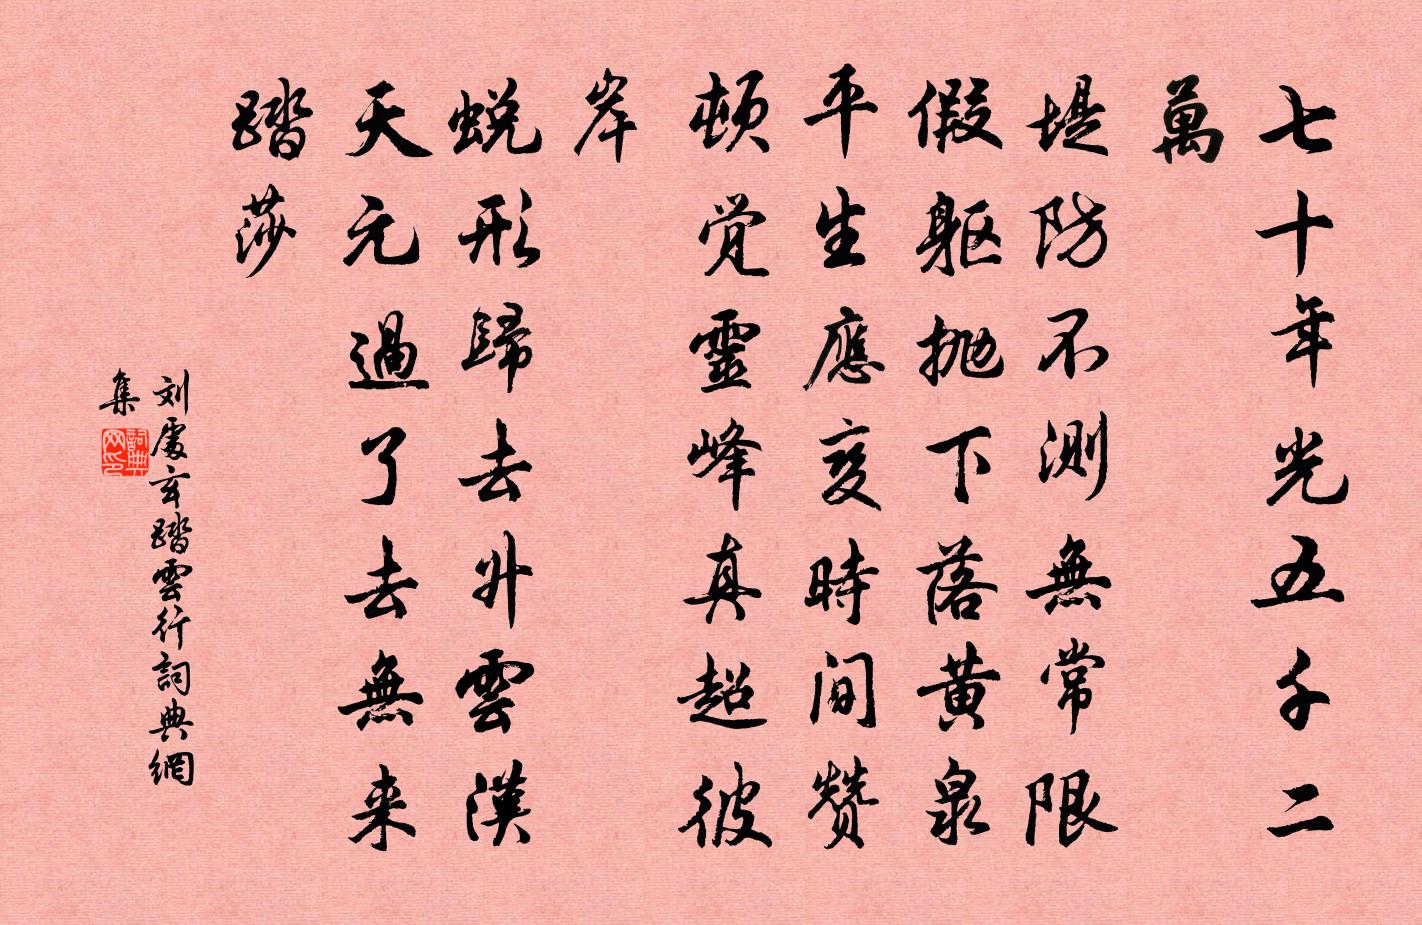 七十年光五千二
萬
堤防不測無常限
假軀抛下落黄泉
平生應变時间赞
頓觉靈峰真超彼
岸
蜕形歸去升雲漢
天元過了去無来
踏莎
刘處玄踏雲行詞典網
集
詞典网